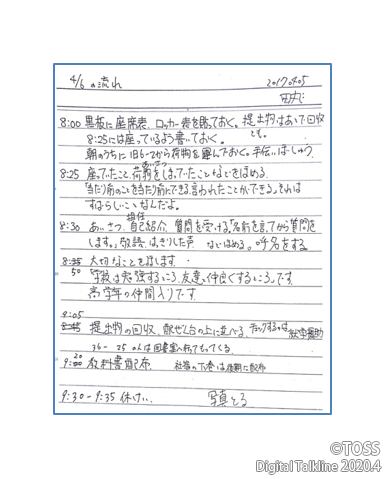 4/6 の流れ 2017.04.05
8:00 黒板に座席表、ロッカー表を貼っておく。提出物はあいで回収
8:25には座っているよう書いておく。とも。
朝のうちに旧6-2から荷物を運んでおく。手伝いはしゅう
あいさつ
8:25 座っていたこと、荷物をしまっていたことなどをほめる。
「当たり前のことを当たり前にできる。言われたことができる。」それは
すばらしいことなんだよ。
担任
8:30 あいさつ、自己紹介、質問を受ける「名前を言ってから質問を
します。」敬語、はっきりした声 などほめる。呼名をする。
8:35 大切なことを話します。
50 「学校は勉強するところ、友達と仲良くするところ。です。
高学年の仲間入りです
9:05
8:45 提出物の回収、配ぜん台の上に並べる。チェックするのは
36-25の人は図書室へ行ってもってくる。
20
9:00 教科書配布、社会の下巻は後期に配布
9:30-9:35 休けい 写真とる
©TOSS
Digital Talkline 2020.4